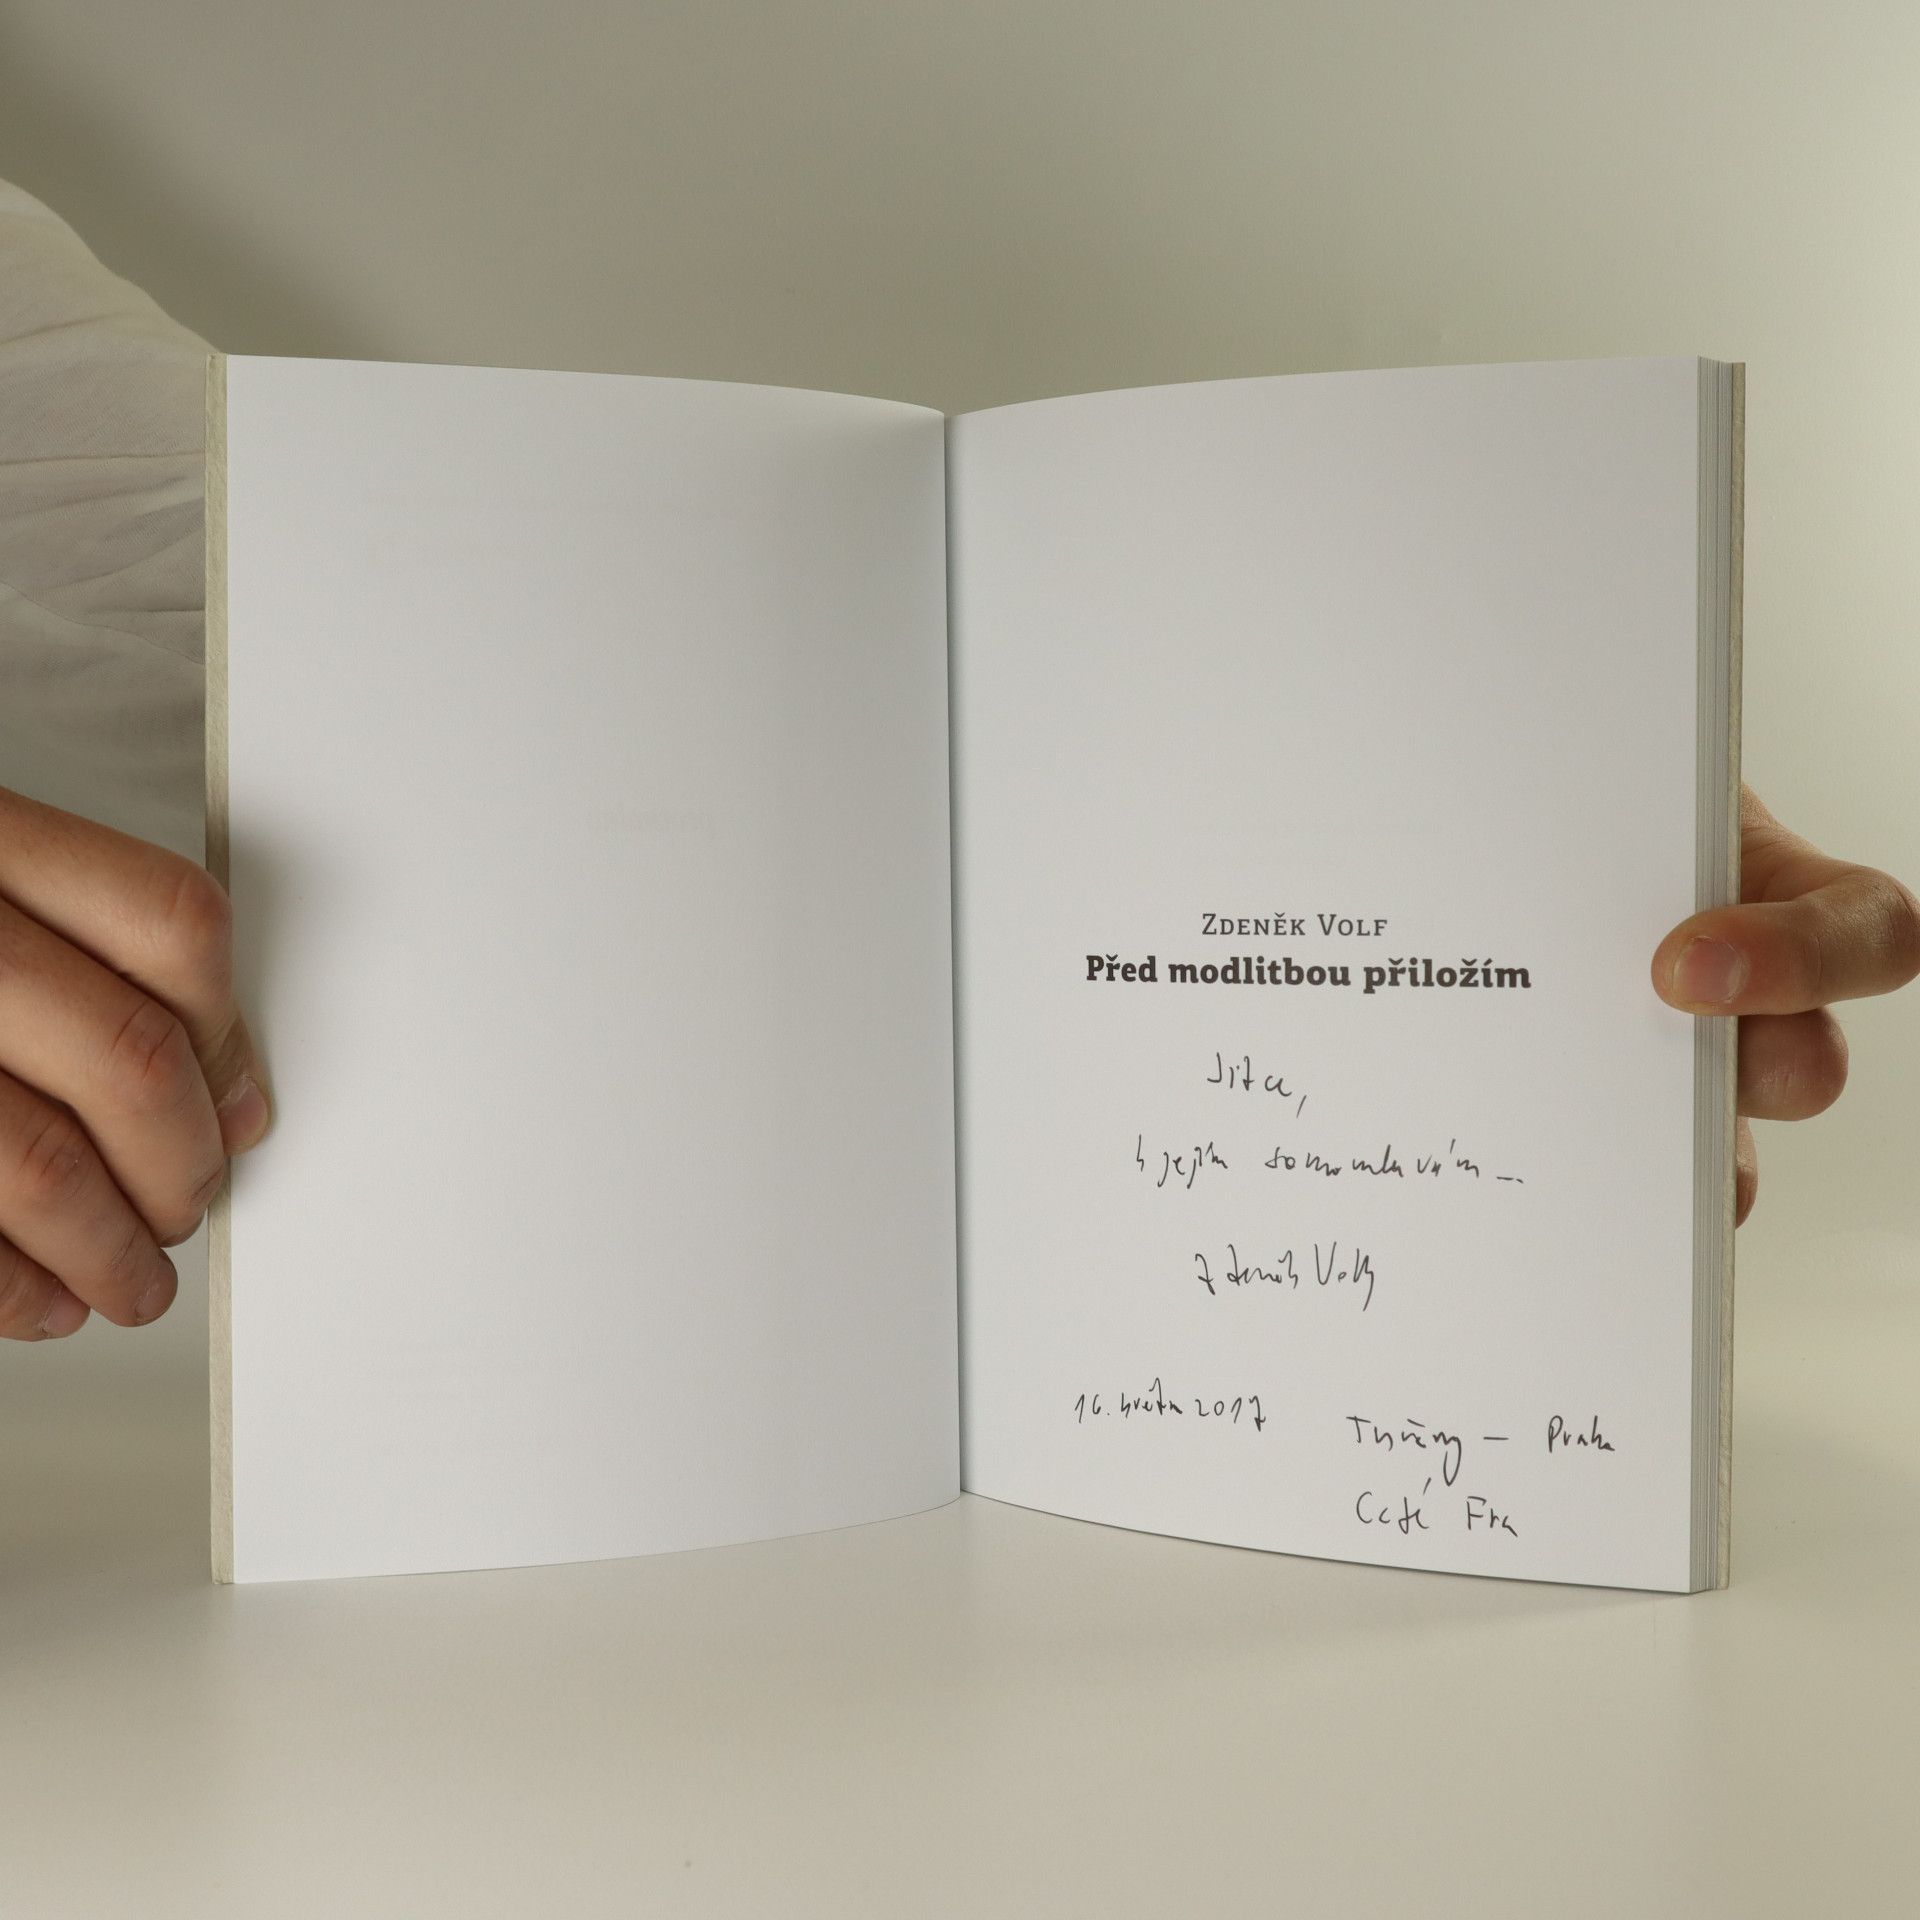 Zdeněk Volf
Před modlitbou přiložím
Jitce,
k jejím samomluvám...
Zdeněk Volf
16. května 2017
Tuřany – Praha
Café Fra